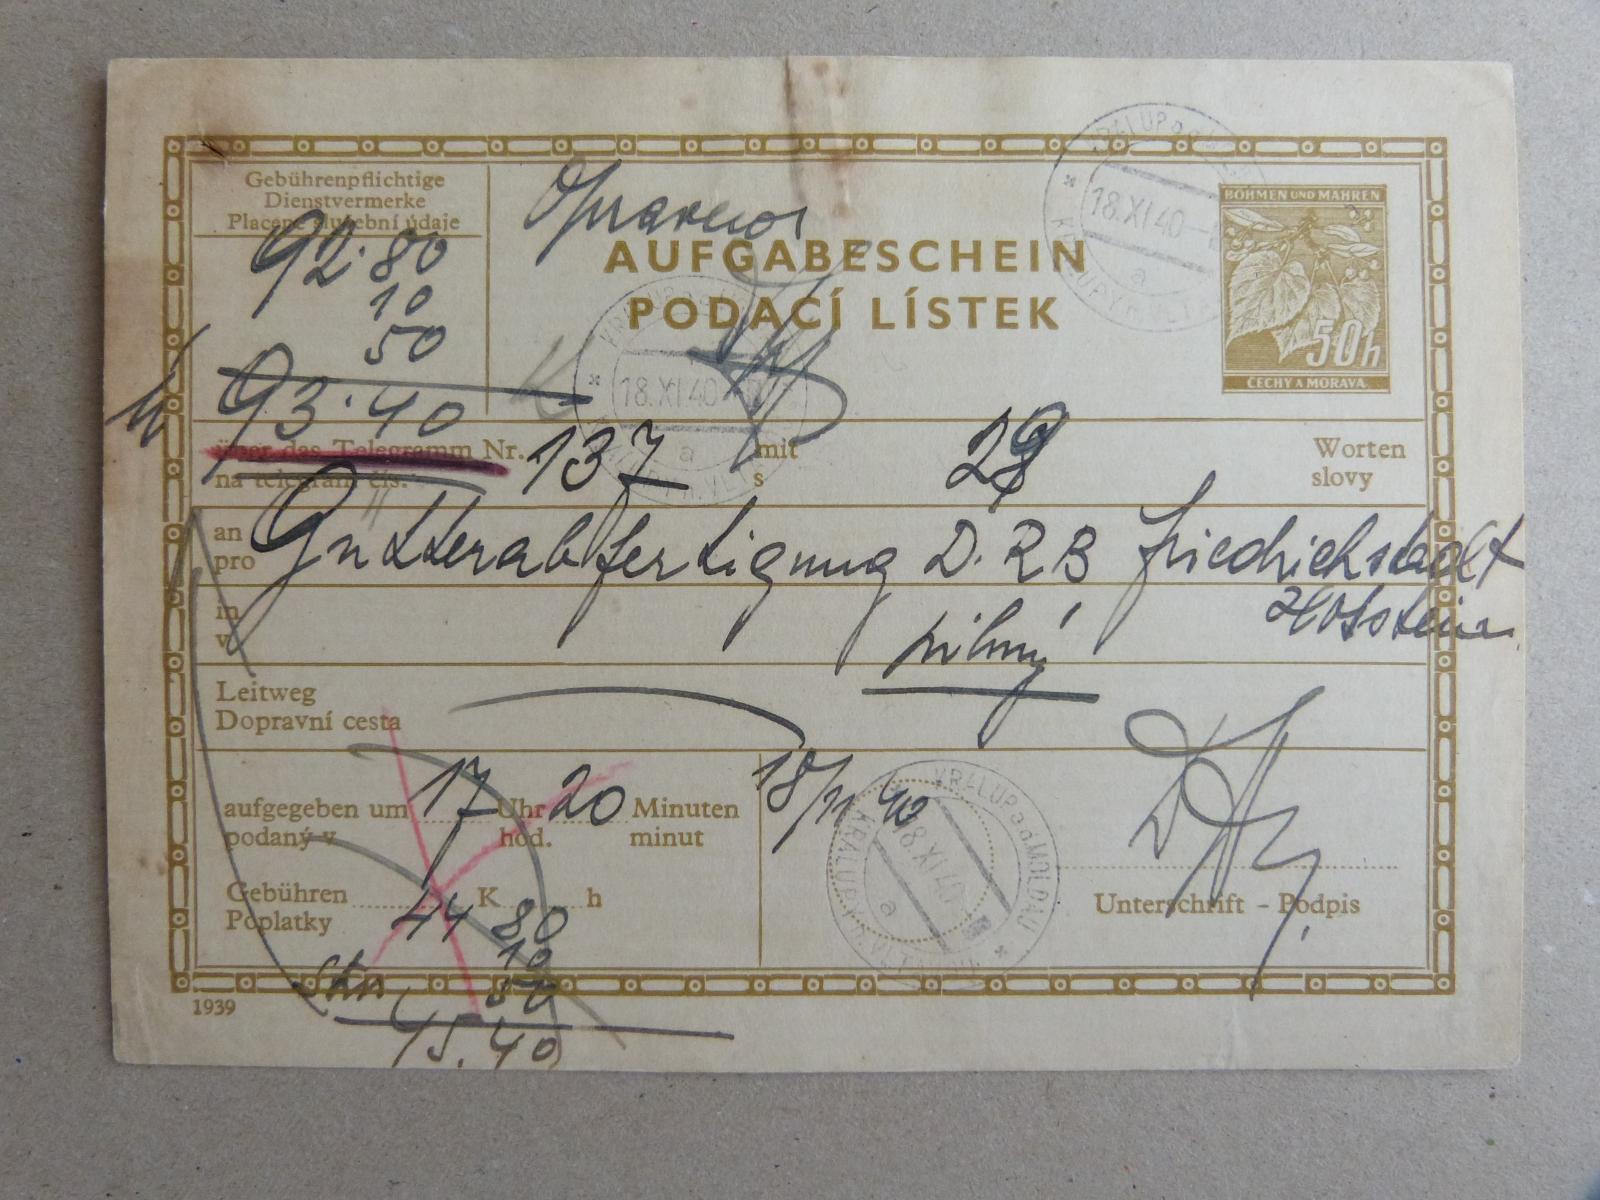 Gebührenpflichtige
Dienstvermerke
Placené služební údaje
92·80
10
50
93·40
AUFGABESCHEIN
PODACÍ LÍSTEK
KRALUP a.d.
18.XI.40
KRALUPY n. VLT.
a
BÖHMEN UND MÄHREN
50h
ČECHY A MORAVA
KRALUP a.d.
18.XI.40
a
über das Telegramm Nr. 137 mit 29 Worten
na telegram čís. s slovy
an
pro
Gütterabfertigung D.R.B Friedrichstadt
Holstein
in
v
pilný
Leitweg
Dopravní cesta
aufgegeben um 17 Uhr 20 Minuten
podaný v hod. minut
18/11 40
KRALUP a.d. MOLDAU
18.XI.40
KRALUPY n. VLT.
a
Gebühren K h
Poplatky
44 80
10
50
45.40
Unterschrift - Podpis
1939